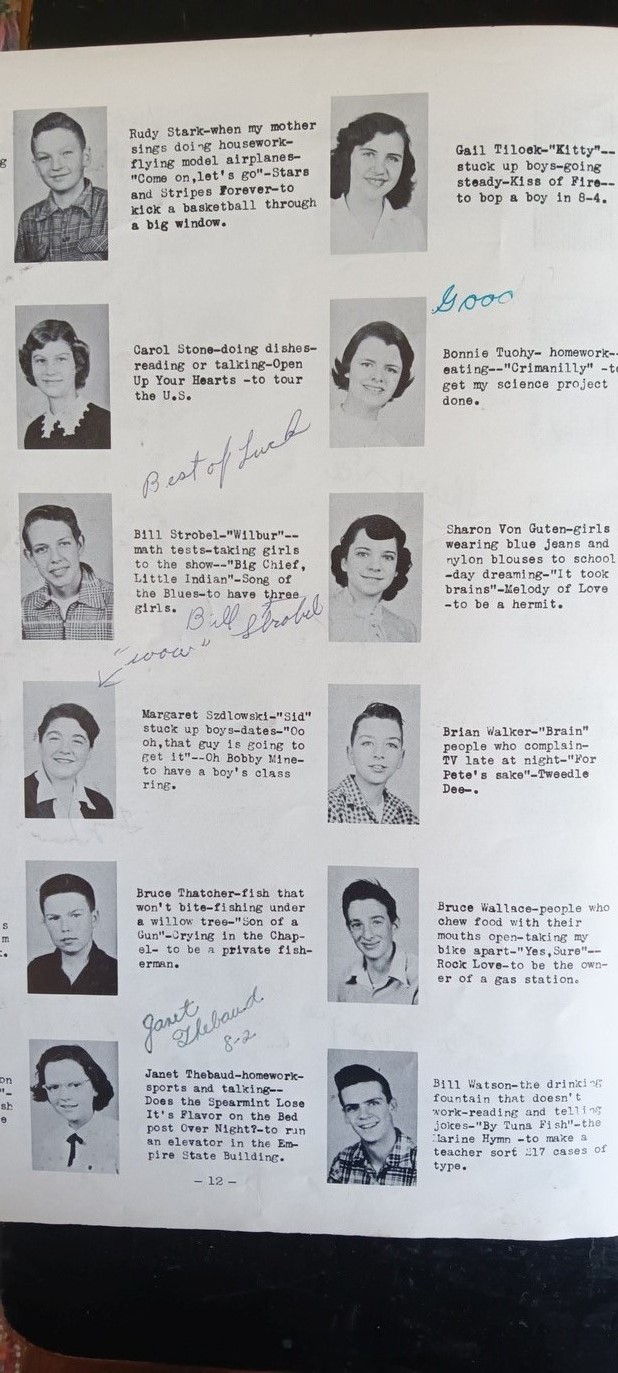 Rudy Stark-when my mother
sings doing housework-
flying model airplanes-
"Come on,let's go"-Stars
and Stripes Forever-to
kick a basketball through
a big window.
Gail Tilock-"Kitty"--
stuck up boys-going
steady-Kiss of Fire--
to bop a boy in 8-4.
Carol Stone-doing dishes-
reading or talking-Open
Up Your Hearts -to tour
the U.S.
Good
Bonnie Tuohy- homework--
eating--"Crimanilly" -to
get my science project
done.
Best of Luck
Bill Strobel-"Wilbur"--
math tests-taking girls
to the show--"Big Chief,
Little Indian"-Song of
the Blues-to have three
girls.
Bill Strobel
Sharon Von Guten-girls
wearing blue jeans and
nylon blouses to school
-day dreaming-"It took
brains"-Melody of Love
-to be a hermit.
"wow"
Margaret Szdlowski-"Sid"
stuck up boys-dates-"Oo
oh,that guy is going to
get it"--Oh Bobby Mine-
to have a boy's class
ring.
Brian Walker-"Brain"
people who complain-
TV late at night-"For
Pete's sake"-Tweedle
Dee-.
Bruce Thatcher-fish that
won't bite-fishing under
a willow tree-"Son of a
Gun"-Crying in the Chap-
el- to be a private fish-
erman.
Bruce Wallace-people who
chew food with their
mouths open-taking my
bike apart-"Yes,Sure"--
Rock Love-to be the own-
er of a gas station.
Janet
Thebaud
8-2
Janet Thebaud-homework-
sports and talking--
Does the Spearmint Lose
It's Flavor on the Bed
post Over Night?-to run
an elevator in the Em-
pire State Building.
Bill Watson-the drinking
fountain that doesn't
work-reading and telling
jokes-"By Tuna Fish"-the
Marine Hymn -to make a
teacher sort 217 cases of
type.
- 12 -